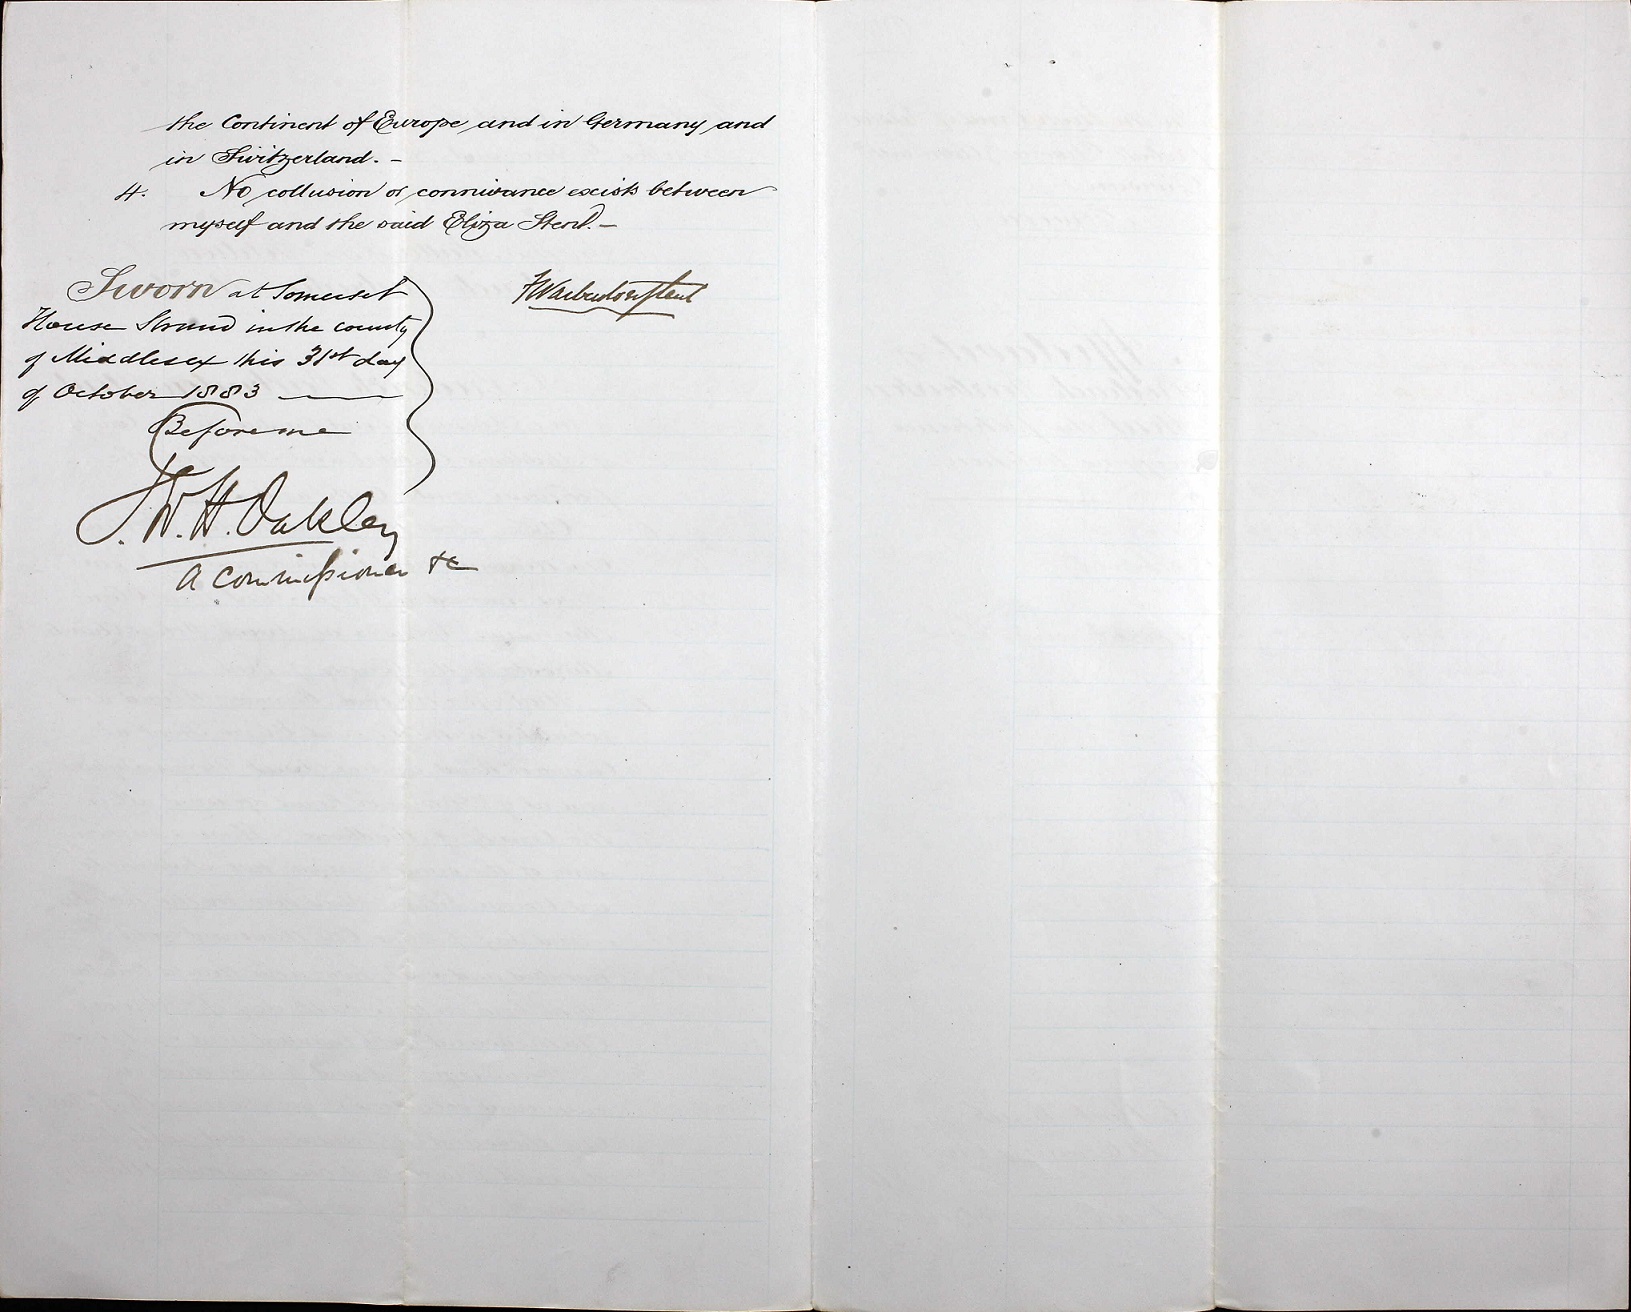 the Continent of Europe and in Germany and
in Switzerland. -
4. No collusion or connivance exists between
myself and the said Eliza Stent. -
Sworn at Somerset
House Strand in the county
of Middlesex this 31st day
of October 1883
Before me
J. W. H. Oakley
A Commissioner &c
F Warburton Stent